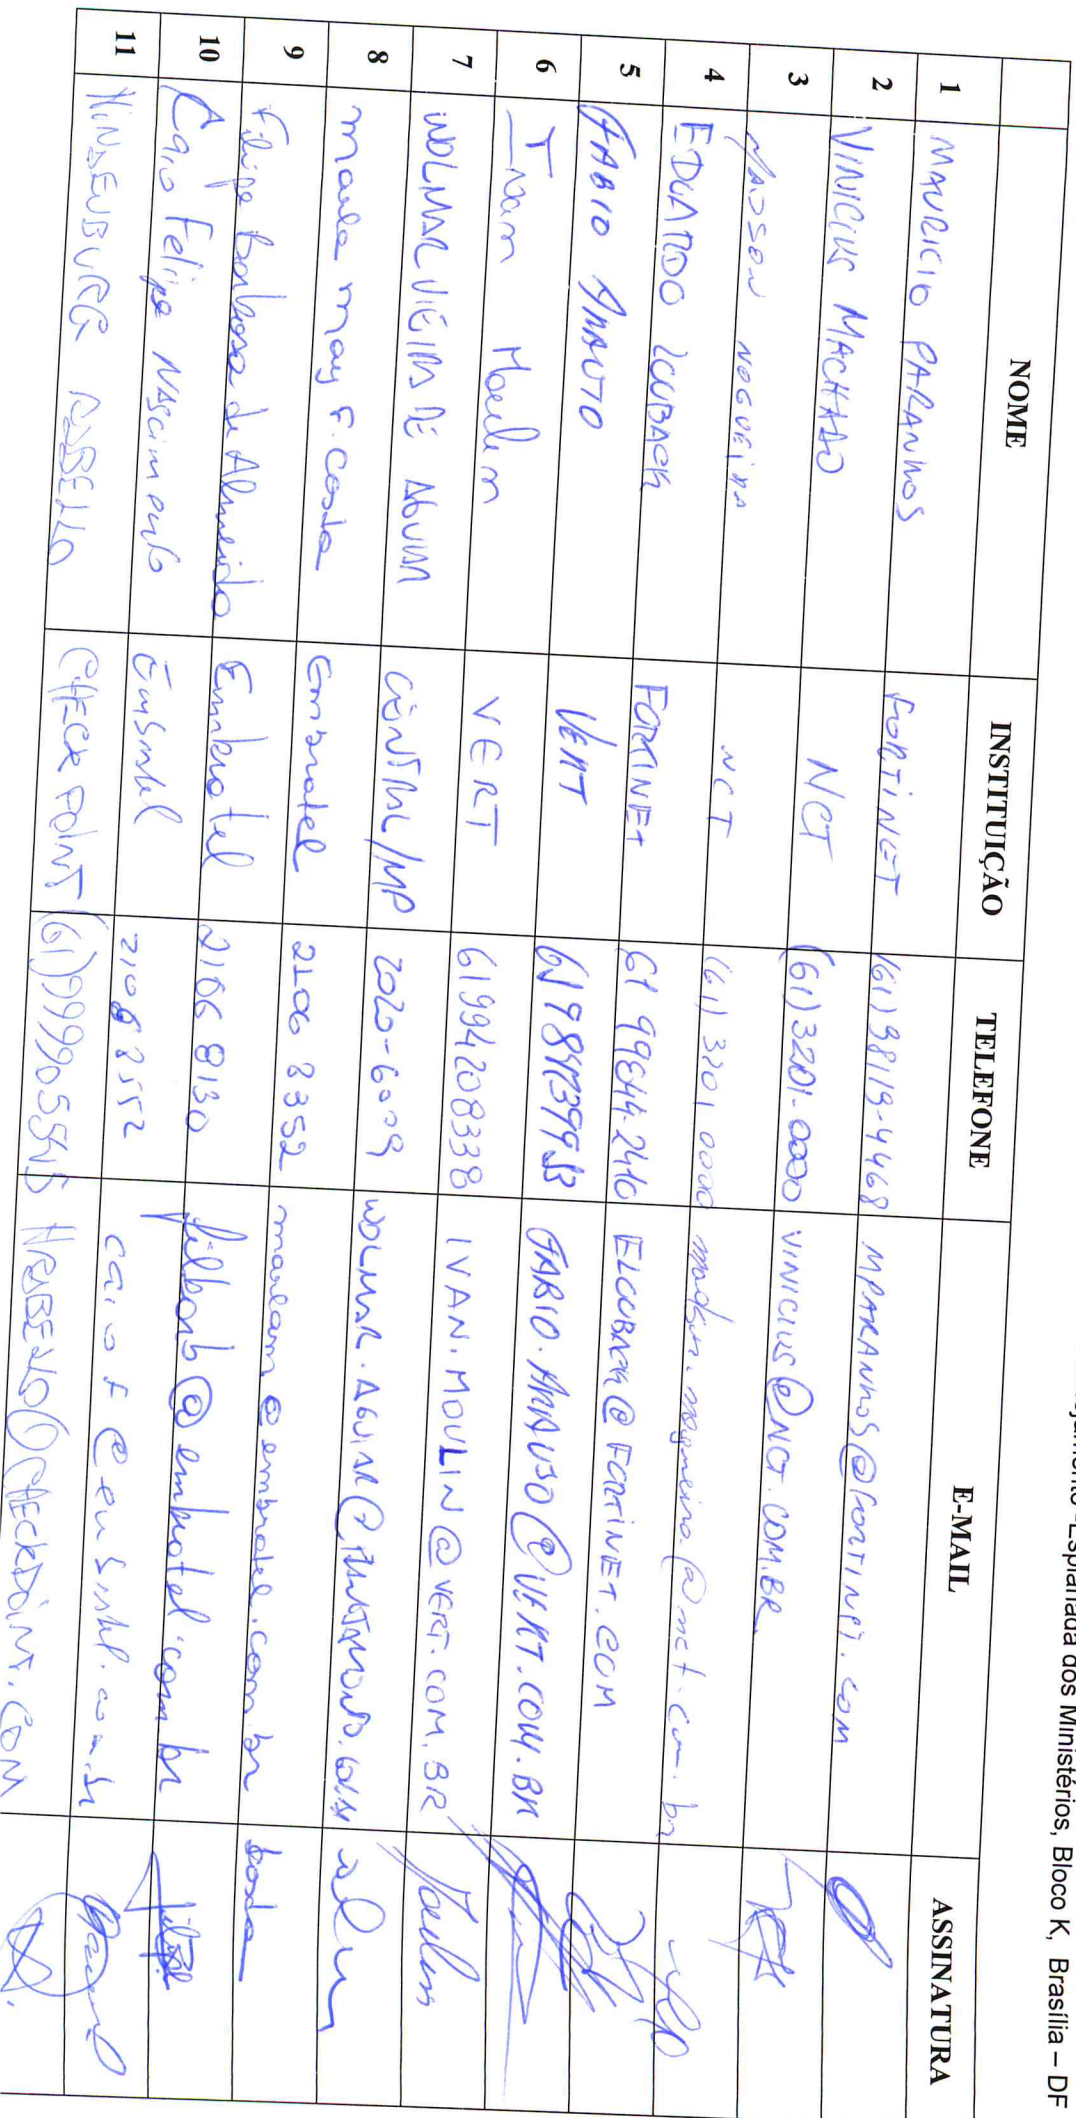 Esplanada dos Ministérios, Bloco K, Brasília – DF
NOME INSTITUIÇÃO TELEFONE E-MAIL ASSINATURA
1 MAURICIO PARANHOS FORTINET (61) 98119-4468 MPARANHOS@FORTINET.COM
2 VINICIUS MACHADO NCT (61) 3201-0000 VINICIUS@NCT.COM.BR
3 MADSON NOGUEIRA NCT (61) 3201 0000 madson.nogueira@nct.com.br
4 EDUARDO FORTINET 61 99644-2410 @FORTINET.COM
5 FABIO VERT FABIO.ARAUJO@VERT.COM.BR
6 Ivan Moulin VERT 61994208338 IVAN.MOULIN@VERT.COM.BR
7 WOLMAR VIEIRA DE AGUIAR /MP 2020-6009 WOLMAR.AGUIAR@
8 Marla May F. Costa Embratel 2106 8352 marlam@embratel.com.br Costa
9 Filipe Barbosa de Almeida Embratel 2106 8130 filbarb@embratel.com.br Filipe
10 Caio Felipe Nascimento Embratel 2106 8552 caiof@embratel.com.br
11 HINDENBURG REBELLO CHECK POINT (61) @CHECKPOINT.COM